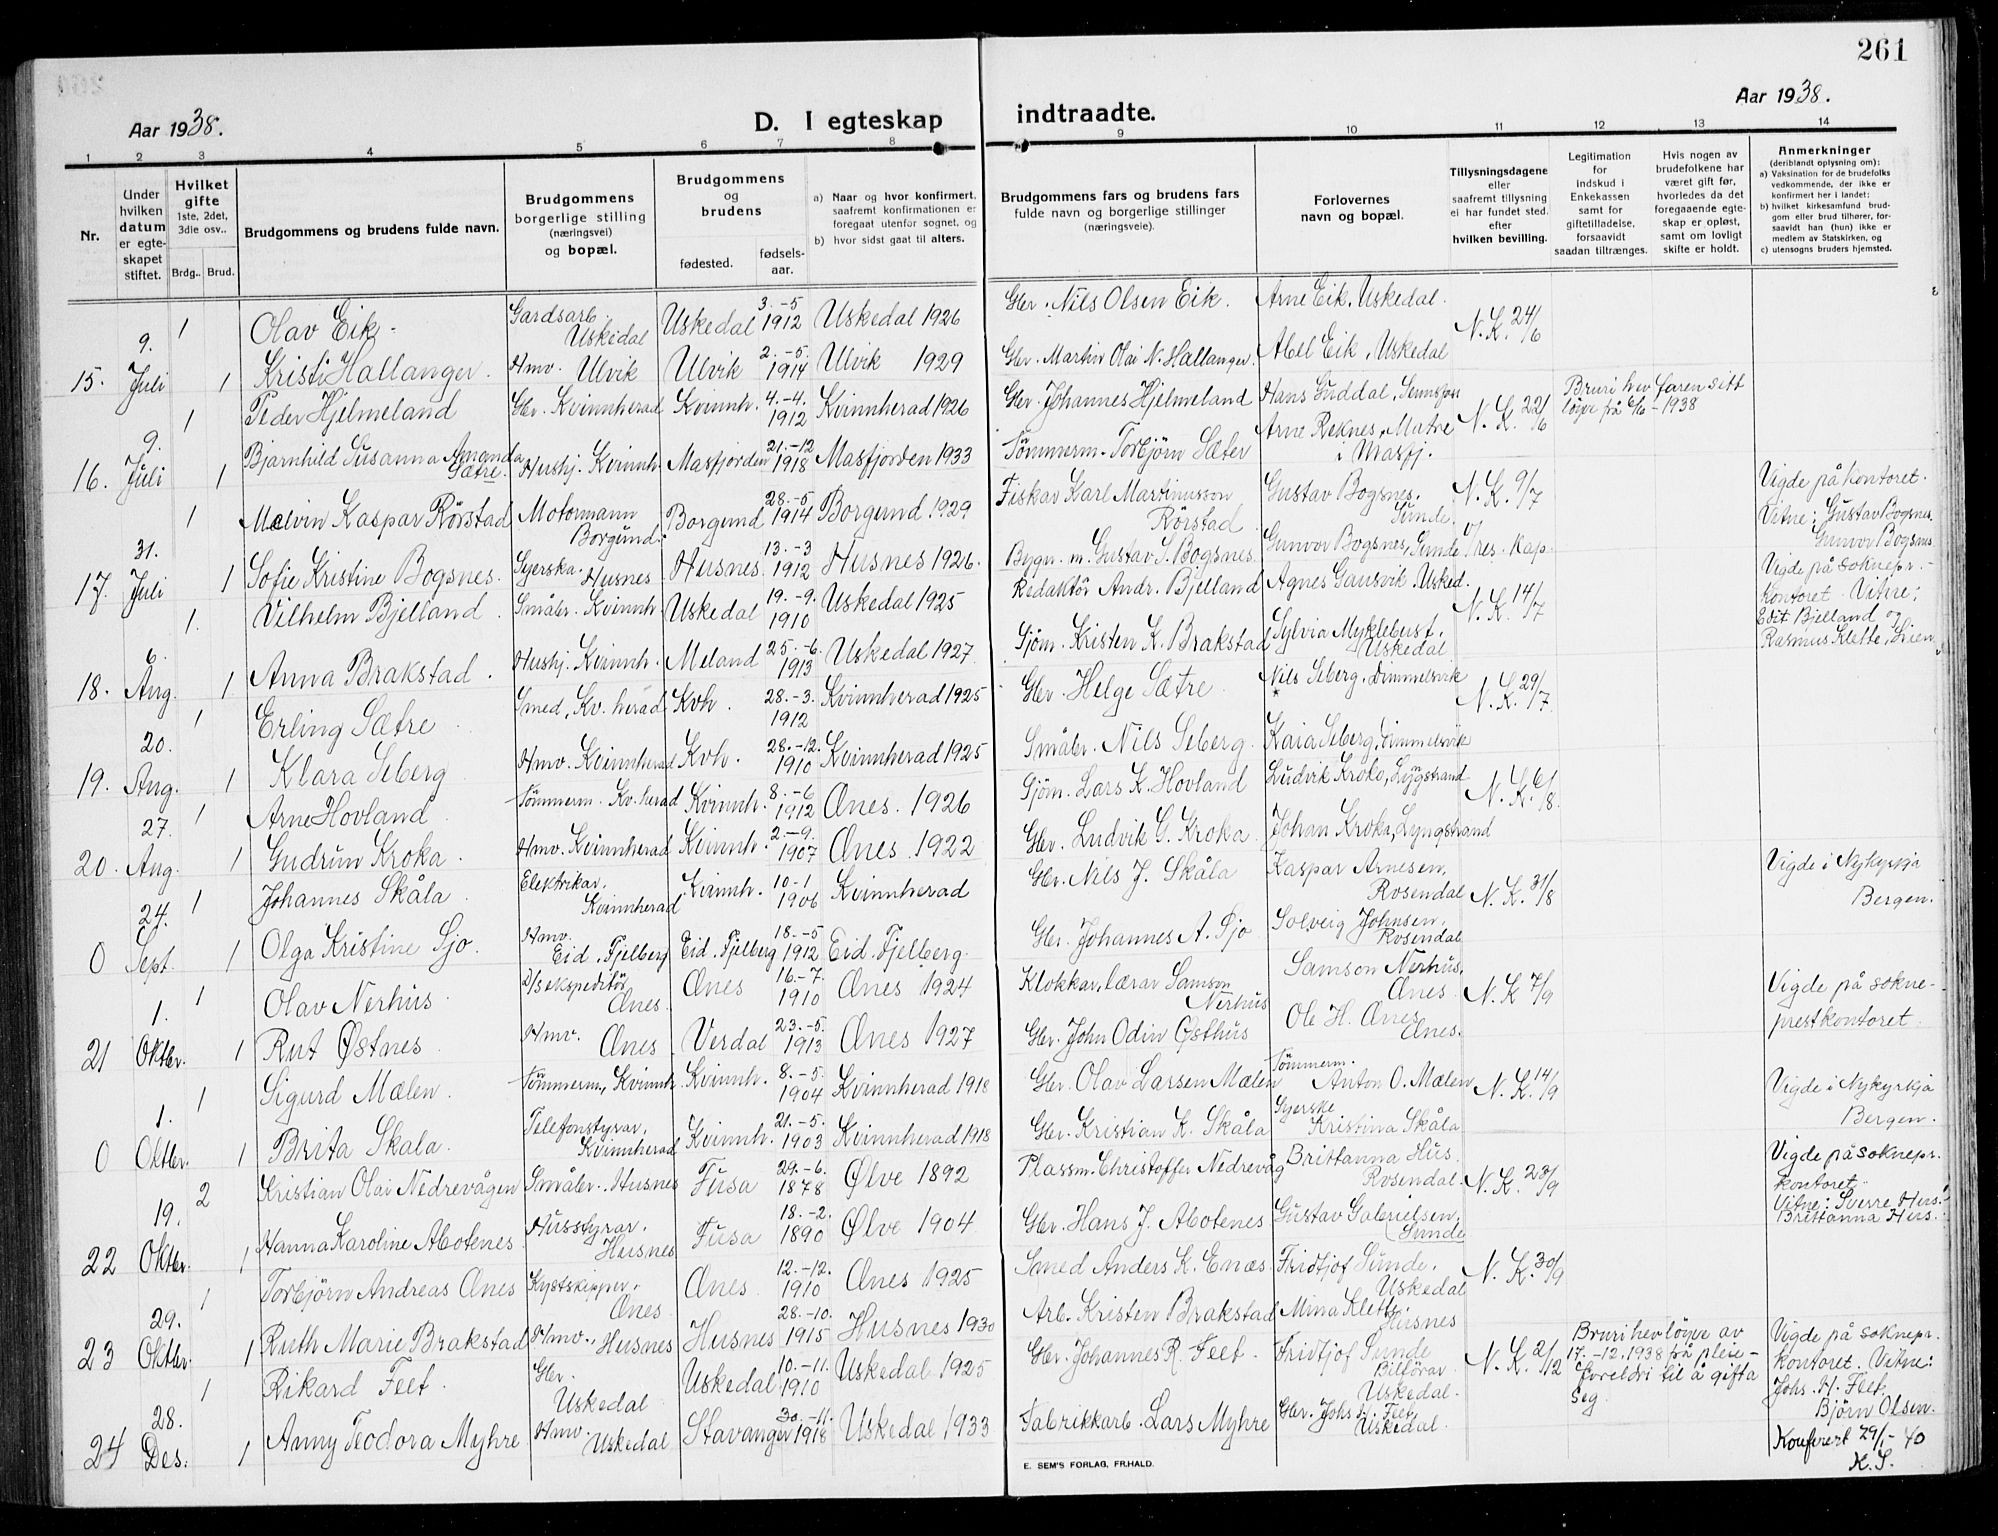 261
Aar 1938.
D. I egteskap indtraadte.
Aar 1938.
1 2 3 4 5 6 7 8 9 10 11 12 13 14
Nr.
Under hvilken datum er egteskapet stiftet.
Hvilket gifte
1ste, 2det, 3die osv..
Brdg.. Brud.
Brudgommens og brudens fulde navn.
Brudgommens borgerlige stilling (næringsvei) og bopæl.
Brudgommens og brudens
fødested. fødselsaar.
a) Naar og hvor konfirmert, saafremt konfirmationen er foregaat utenfor sognet, og
b) hvor sidst gaat til alters.
Brudgommens fars og brudens fars fulde navn og borgerlige stillinger (næringsveie).
Forlovernes navn og bopæl.
Tillysningsdagene eller saafremt tillysning ei har fundet sted. efter hvilken bevilling.
Legitimation for Indskud i Enkekassen samt for giftetilladelse, forsaavidt saadan tiltrænges.
Hvis nogen av brudefolkene har været gift før, hvorledes da det foregaaende egteskap er opløst, samt om lovligt skifte er holdt.
Anmerkninger
(deriblandt oplysning om):
a) Vaksination for de brudefolks vedkommende, der ikke er konfirmert her i landet:
b) hvilket kirkesamfund brudgom eller brud tilhører, forsaavidt han (hun) ikke er medlem av Statskirken, og
c) utensogns bruders hjemsted.
1 Olav Eik Gardsarb. Uskedal Uskedal 3.-5 1912 Uskedal 1926 Gbr. Nils Olsen Eik. Arne Eik, Uskedal. N.K. 24/6
15. 9. Juli 1 Kristi Hallanger. Hmv. Ulvik Ulvik 2.-5. 1914 Ulvik 1929 Gbr. Martin Olai N. Hallanger. Abel Eik, Uskedal
1 Peder Hjelmeland Gbr. Kvinnherad Kvinnh. 4.-4. 1912 Kvinnherad 1926 Gbr. Johannes Hjelmeland Hans Guddal, N.K. 22/6 Bruri hev faren sitt løyve frå 6/6-1938
16. 9. Juli 1 Bjarnhild Susanna Amanda Sætre. Hushj. Kvinnh. Masfjorden 21.-12 1918 Masfjorden 1933 Tømmerm. Torbjørn Sæter Arne Reknes, Matre i Masfj.
1 Mælvin Kaspar Rörstad Motormann Borgund. Borgund 28.-5 1914 Borgund 1929 Fiskar Karl Martinusson Rörstad Gustav Bogsnes. Sunde. N.K. 9/7 Vigde på kontoret. Vitne: Gustav Bogsnes. Gunvor Bogsnes
17. 31. Juli 1 Sofie Kristine Bogsnes. Syerska. Husnes Husnes 13.-3 1912 Husnes 1926. Bygn. m. Gustav S. Bogsnes. Gunvor Bogsnes, Sunde v/ res. kap.
1. Vilhelm Bjelland Småbr. Kvinnh. Uskedal 19.-9. 1910 Uskedal 1925 Redaktör Andr. Bjelland Agnes Gausvik Usked. N.K. 14/7 Vigde på soknepr.-kontoret. Vitne: Edit Bjelland og Rasmus Klette, Lien
18. 6. Aug. 1 Anna Brakstad. Hushj. Kvinnh. Meland 25.-6. 1913 Uskedal 1927. Sjøm. Kristen K. Brakstad Sylvia Myklebust. Uskedal
1 Erling Sætre Smed, Kv.herad Kvh. 28.-3. 1912 Kvinnherad 1925 Gbr. Helge Sætre. Nils Seberg, Dimmelsvik N.K. 29/7
19. 20. Aug. 1 Klara Seberg Hmv. Kvinnherad Kvh. 28.-12. 1910 Kvinnherad 1925 Småbr. Nils Seberg. Kaia Seberg, Dimmelsvik
1 Arne Hovland Tömmerm. Kv.herad Kvinnh. 8.-6 1912 Ænes. 1926 Sjøm. Lars K. Hovland Ludvik Kroko, Lygstrand N.K. 6/8.
20. 27. Aug. 1 Gudrun Kroka. Hmv. Kvinnherad Kvinnh. 2.-9. 1907 Ænes. 1922 Gbr. Ludvik G. Kroka. Johan Kroka, Lyngstrand
1 Johannes Skåla. Elektrikar, Kvinnherad Kvinnh. 10-1 1906 Kvinnherad Gbr. Nils J. Skåla Kaspar Arnesen, Rosendal N.K. 31/8 Vigde i Nykyrkja Bergen.
0 24. Sept. 1 Olga Kristine Sjo. Hmv. Eid, Fjelberg Eid. Fjelberg 18.-5 1912 Eid. Fjelberg. Gbr. Johannes A. Sjo Solveig Johnsen. Rosendal
1 Olav Nerhus D/s ekspeditör Ænes. Ænes 16.-7. 1910 Ænes 1924 Klokkar, lærar Samson Nerhus Samson Nerhus, Ænes N.K. 7/9 Vigde på sokneprestkontoret.
21 1. Oktbr. 1 Rut Østnes Hmv. Ænes Verdal 23.-5. 1913 Ænes 1927 Gbr. John Odin Østhus Ole H. Ænes Ænes.
1 Sigurd Mælen. Tömmerm., Kvinnh. Kvinnh. 8.-5. 1904 Kvinnherad 1918 Gbr. Olav Larsen Mælen Tömmerm. Anton O. Mælen N.K. 14/9 Vigde i Nykyrkja Bergen.
0 1. Oktbr. 1 Brita Skåla. Telefonstyrar, Kvinnherad Kvinnh. 21.-5. 1903 Kvinnherad 1918 Gbr. Kristian K. Skåla Syerske Kristina Skåla
2 Kristian Olai Nedrevågen Småbr. Husnes Fusa 29.-6. 1878 Ølve 1892 Plassm. Christoffer Nedrevåg Brittanna Hus. Rosendal. N.K. 23/9 Vigde på soknepr. kontoret. Vitne: Sverre Hus. Brittanna Hus.
22 19. Oktbr. 1 Hanna Karoline Abotenes Husstyrar. Husnes Fusa 18.-2. 1890 Ølve 1904 Gbr. Hans J. Abotenes Gustav Gabrielsen, Sunde
1 Torbjørn Andreas Ænes Kystskipper, Ænes Ænes. 12.-12. 1910 Ænes 1925 Smed Anders K. Enæs Fridtjof Sunde. Uskedal N.K. 30/9
23 29. Oktbr. 1 Ruth Marie Brakstad Hmv., Husnes Husnes 28.-10. 1915 Husnes 1930 Arb. Kristen Brakstad Mina Klette. Husnes
1 Rikard Feet. Gbr. Uskedal Uskedal 10.-11. 1910 Uskedal 1925 Gbr. Johannes R. Feet. Fridtjof Sunde Bilförar Uskedal. N.K. 2/12 Bruri hev løyve av 17.-12.1938 frå pleieforeldri til å gifta seg. Vigde på soknepr. kontoret. Vitne: Johs. H. Feet, Björn Olsen.
24 28. Des. 1 Anny Teodora Myhre Hmv. Uskedal Stavanger 30.-11. 1918 Uskedal 1933 Fabrikkarb. Lars Myhre Gbr. Johs H. Feet, Uskedal.
Konferert 29/1-40
K.S.
E. SEM'S FORLAG, FR.HALD.